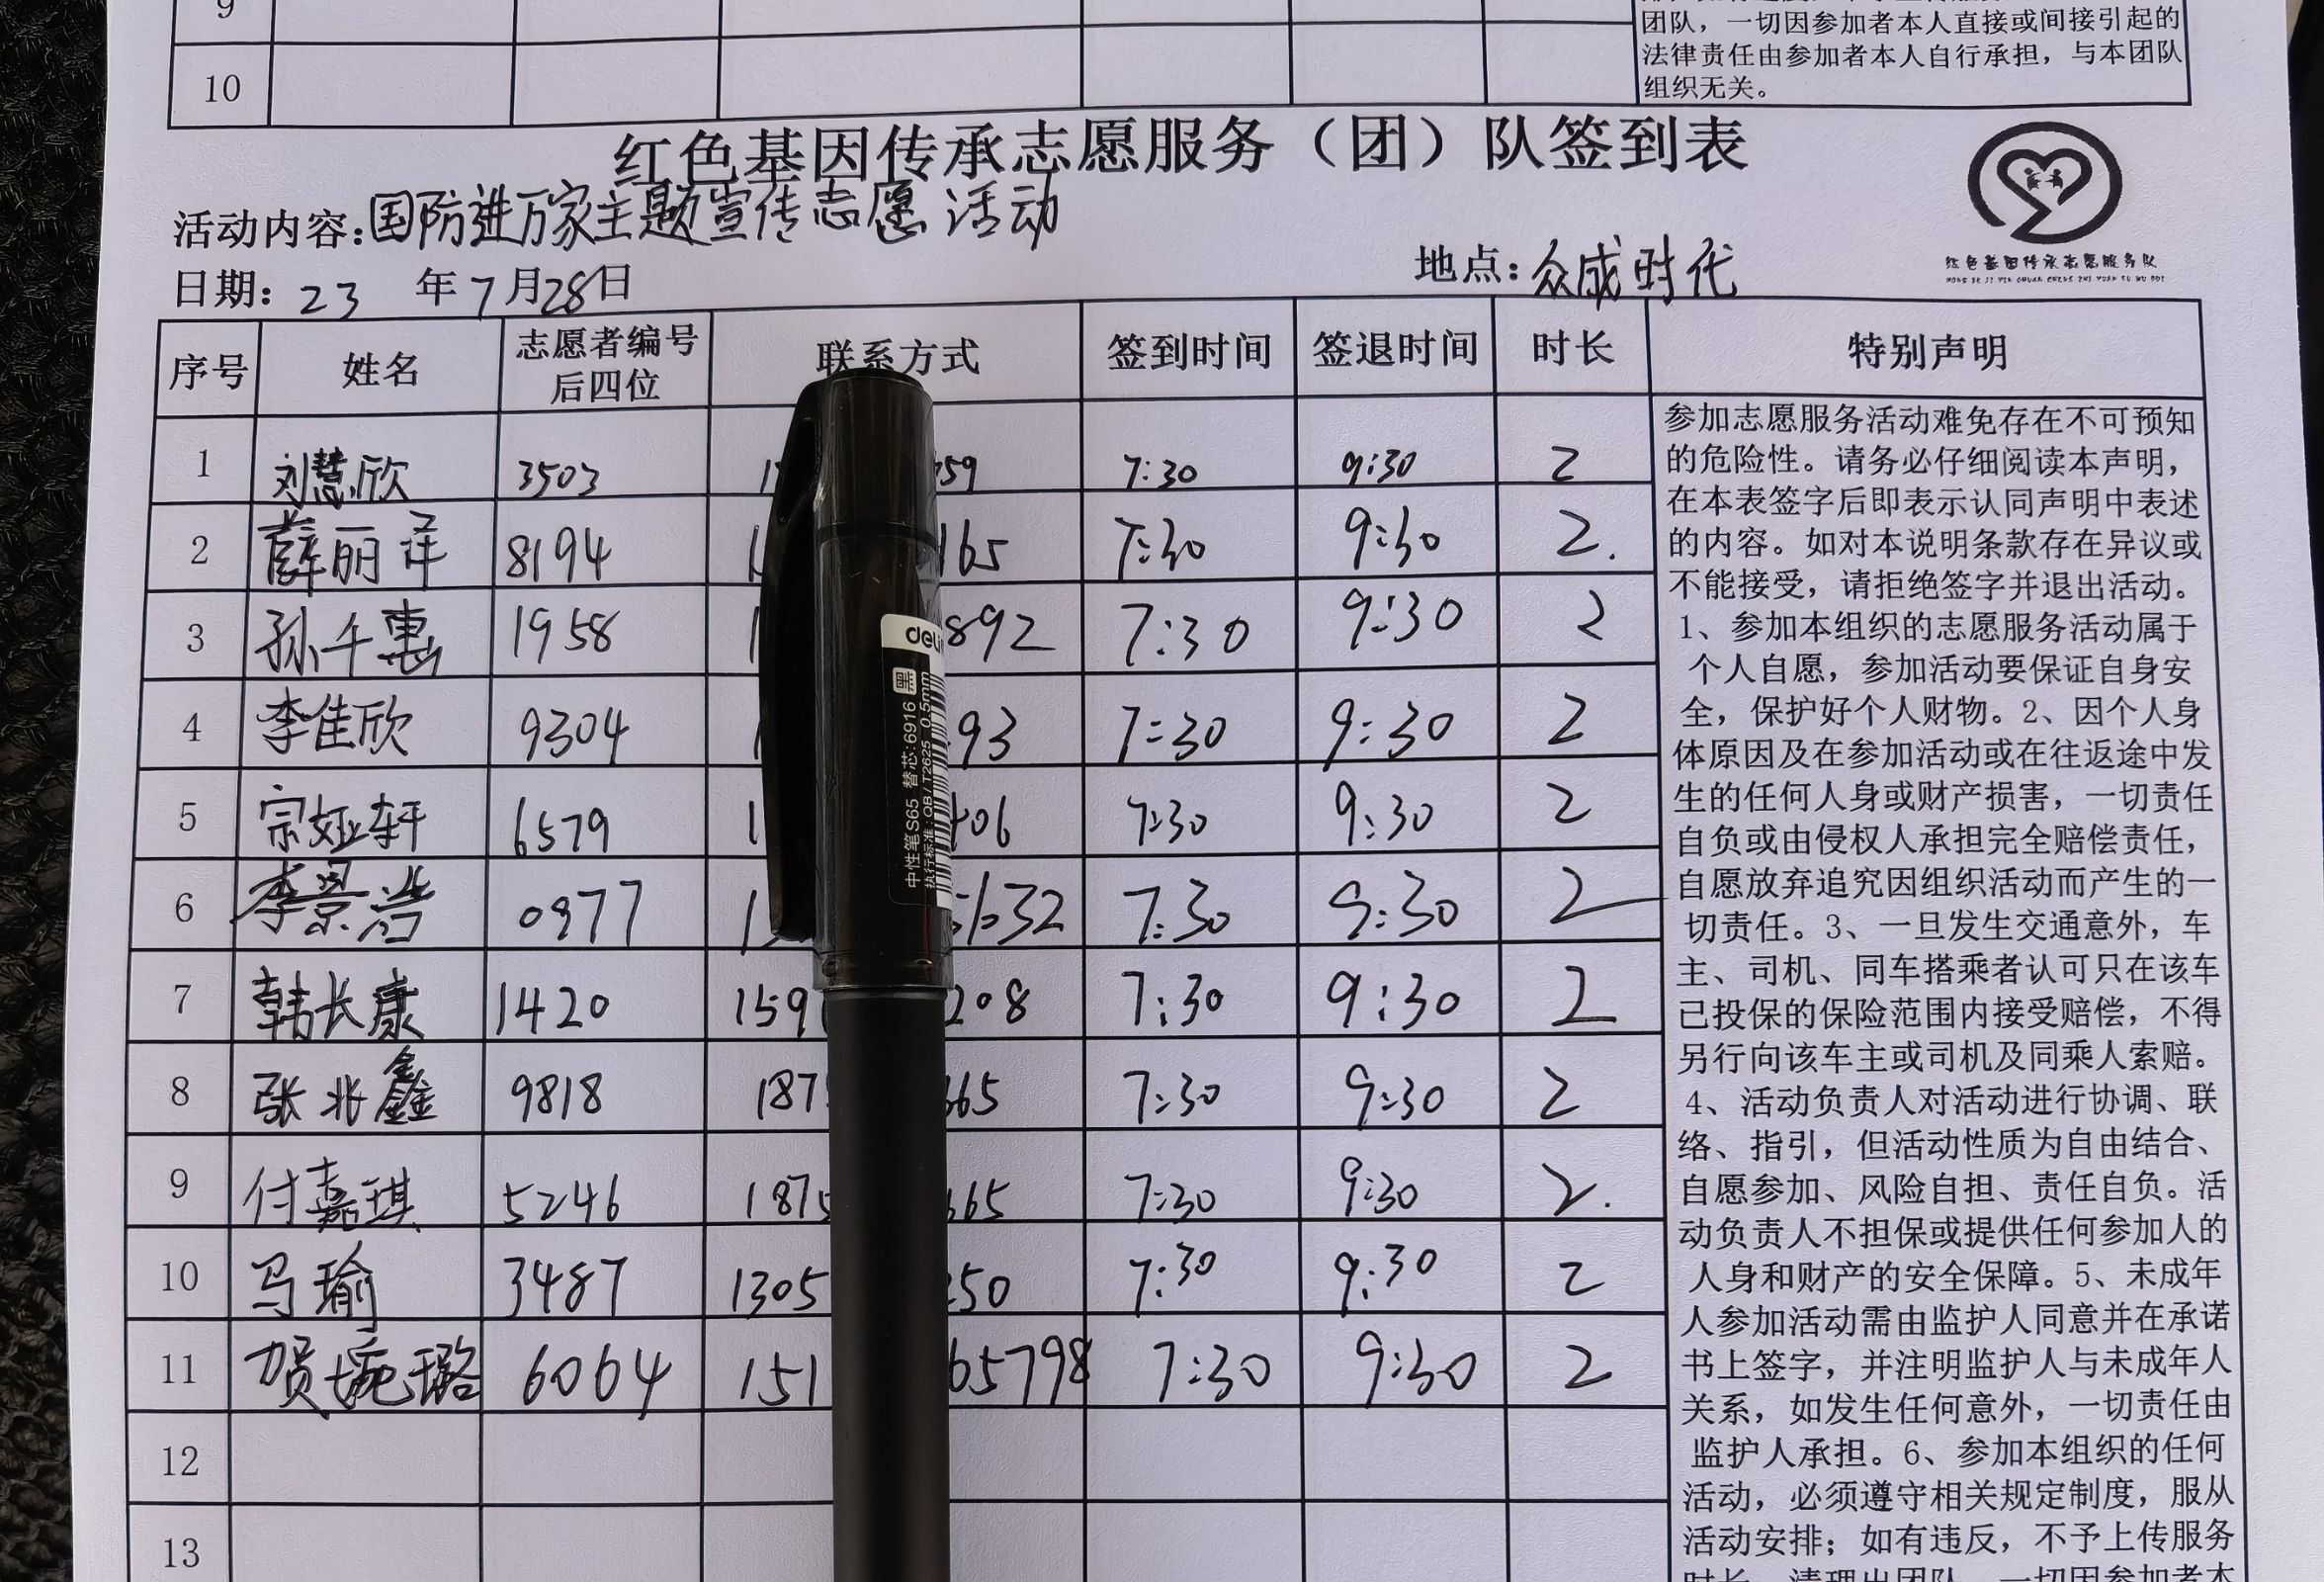 9
团队，一切因参加者本人直接或间接引起的
法律责任由参加者本人自行承担，与本团队
组织无关。
10
红色基因传承志愿服务（团）队签到表
活动内容：国防进万家主题宣传志愿活动
日期：23 年7月28日 地点：众成时代
红色基因传承志愿服务队
HONG SE JI YIN CHUAN CHENG ZHI YUAN FU WU DUI
序号 姓名 志愿者编号后四位 联系方式 签到时间 签退时间 时长 特别声明
1 刘慧欣 3503 1 59 7:30 9:30 2
2 薛丽萍 8194 1 165 7:30 9:30 2.
3 孙千惠 1958 1 892 7:30 9:30 2
4 李佳欣 9304 1 93 7:30 9:30 2
5 宗娅轩 6579 1 06 7:30 9:30 2
6 李景浩 0977 1 32 7:30 9:30 2
7 韩长康 1420 159 208 7:30 9:30 2
8 张兆鑫 9818 187 665 7:30 9:30 2
9 付嘉琪 5246 187 665 7:30 9:30 2.
10 马瑜 3487 1305 50 7:30 9:30 2
11 贺婉璐 6064 151 65798 7:30 9:30 2
12
13
参加志愿服务活动难免存在不可预知
的危险性。请务必仔细阅读本声明，
在本表签字后即表示认同声明中表述
的内容。如对本说明条款存在异议或
不能接受，请拒绝签字并退出活动。
1、参加本组织的志愿服务活动属于
个人自愿，参加活动要保证自身安
全，保护好个人财物。2、因个人身
体原因及在参加活动或在往返途中发
生的任何人身或财产损害，一切责任
自负或由侵权人承担完全赔偿责任，
自愿放弃追究因组织活动而产生的一
切责任。3、一旦发生交通意外，车
主、司机、同车搭乘者认可只在该车
已投保的保险范围内接受赔偿，不得
另行向该车主或司机及同乘人索赔。
4、活动负责人对活动进行协调、联
络、指引，但活动性质为自由结合、
自愿参加、风险自担、责任自负。活
动负责人不担保或提供任何参加人的
人身和财产的安全保障。5、未成年
人参加活动需由监护人同意并在承诺
书上签字，并注明监护人与未成年人
关系，如发生任何意外，一切责任由
监护人承担。6、参加本组织的任何
活动，必须遵守相关规定制度，服从
活动安排；如有违反，不予上传服务
时长，清理出团队，一切因参加者本
deli
黑
中性笔S65 替芯:6916
执行标准:QB/T2625 0.5mm